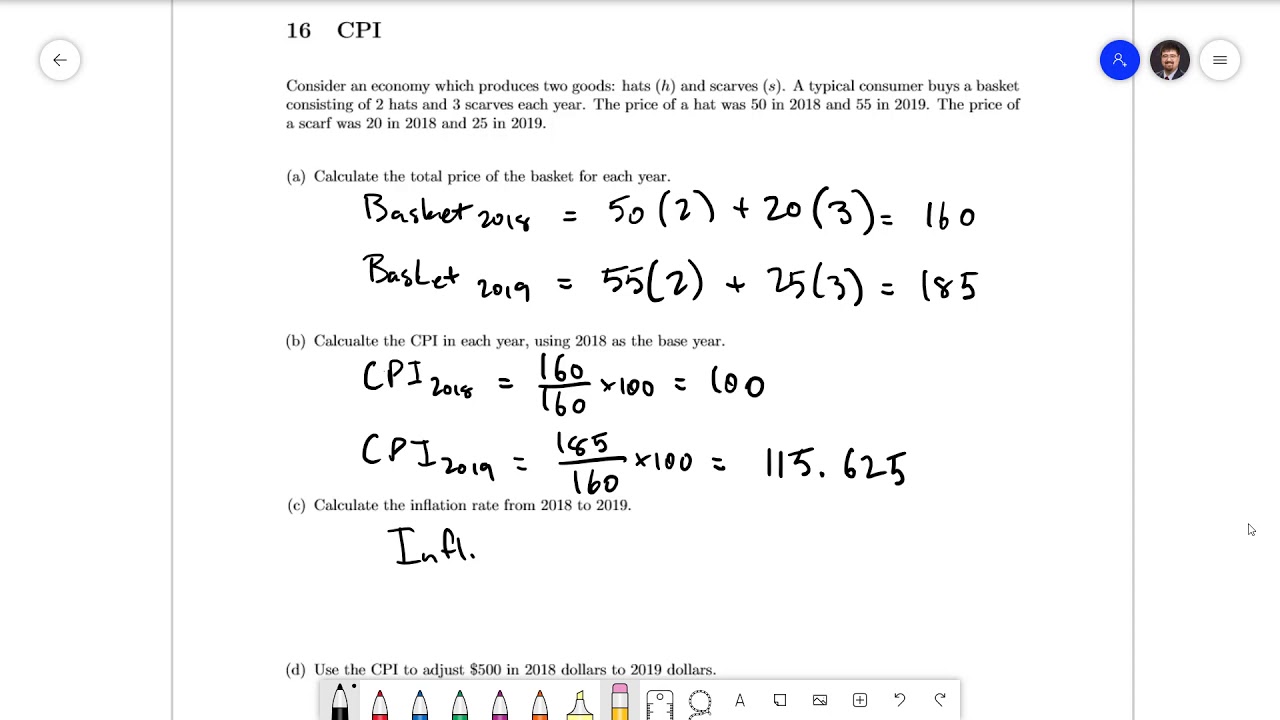 16 CPI
Consider an economy which produces two goods: hats (h) and scarves (s). A typical consumer buys a basket
consisting of 2 hats and 3 scarves each year. The price of a hat was 50 in 2018 and 55 in 2019. The price of
a scarf was 20 in 2018 and 25 in 2019.
(a) Calculate the total price of the basket for each year.
Basket 2018 = 50(2) + 20(3) = 160
Basket 2019 = 55(2) + 25(3) = 185
(b) Calcualte the CPI in each year, using 2018 as the base year.
CPI 2018 = 160/160 × 100 = 100
CPI 2019 = 185/160 × 100 = 115.625
(c) Calculate the inflation rate from 2018 to 2019.
Infl.
(d) Use the CPI to adjust $500 in 2018 dollars to 2019 dollars.
A